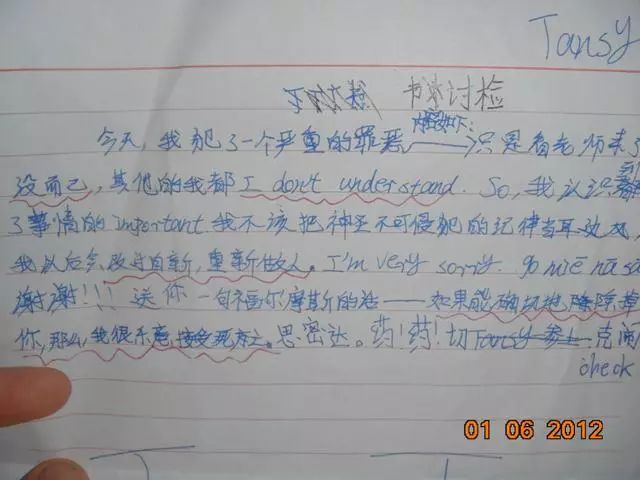 Tansy
书讨检
今天,我犯了一个严重的罪恶——只是看老师来了
没而已,其他的我都I don't understand. So,我认识到
了事情的important.我不该把神圣不可侵犯的纪律当耳边风,
我以后会改过自新,重新做人。I'm very sorry. go mie na sa
谢谢!!!送你一句福尔摩斯的话——如果能确切地除掉
你,那么我很乐意接受死亡。思密达。药!药!切
check
01 06 2012